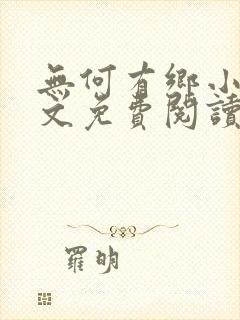 無何有鄉小
文免費閱讀
羅明